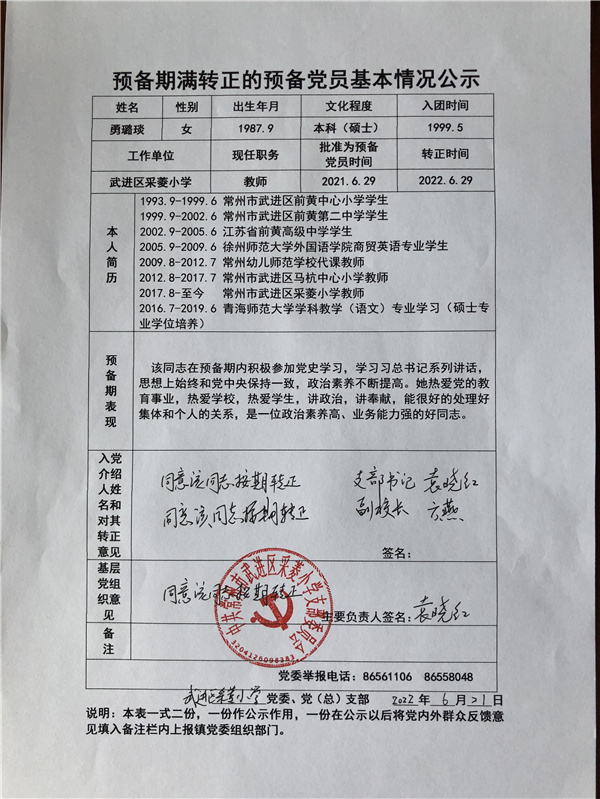 预备期满转正的预备党员基本情况公示
姓名 性别 出生年月 文化程度 入团时间
勇璐琰 女 1987.9 本科（硕士） 1999.5
工作单位 现任职务 批准为预备党员时间 转正时间
武进区采菱小学 教师 2021.6.29 2022.6.29
本人简历
1993.9-1999.6 常州市武进区前黄中心小学学生
1999.9-2002.6 常州市武进区前黄第二中学学生
2002.9-2005.6 江苏省前黄高级中学学生
2005.9-2009.6 徐州师范大学外国语学院商贸英语专业学生
2009.8-2012.7 常州幼儿师范学校代课教师
2012.8-2017.7 常州市武进区马杭中心小学教师
2017.8-至今 常州市武进区采菱小学教师
2016.7-2019.6 青海师范大学学科教学（语文）专业学习（硕士专
业学位培养）
预备期表现
该同志在预备期内积极参加党史学习，学习习总书记系列讲话，
思想上始终和党中央保持一致，政治素养不断提高。她热爱党的教
育事业，热爱学校，热爱学生，讲政治，讲奉献，能很好的处理好
集体和个人的关系，是一位政治素养高、业务能力强的好同志。
入党介绍人姓名和对其转正意见
同意该同志按期转正 支部书记 袁晓红
同意该同志按期转正 副校长 方燕
签名：
基层党组织意见
同意该同志按期转正
主要负责人签名：袁晓红
中共常州市武进区采菱小学支部委员会
3204126098383
备注
党委举报电话：86561106 86558048
武进区采菱小学 党委、党（总）支部 2022 年 6 月 21 日
说明：本表一式二份，一份作公示作用，一份在公示以后将党内外群众反馈意
见填入备注栏内上报镇党委组织部门。